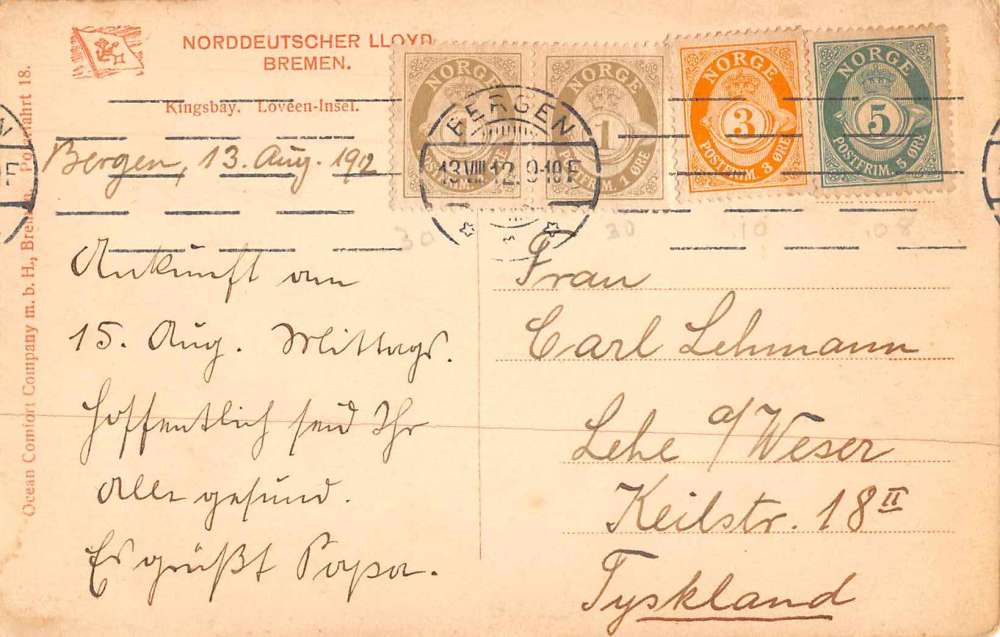 NORDDEUTSCHER LLOYD
BREMEN.
Kingsbay. Lovèen-Insel.
Bergen, 13. Aug. 1912
Ankunft am
15. Aug. Mittags.
Hoffentlich seid Ihr
Alle gesund.
Es grüßt Papa.
Ocean Comfort Company m. b. H., Bremen. Polarfahrt 18.
NORGE
1
NORGE
1
POSTFRIM. 1 ØRE
NORGE
3
POSTFRIM. 3 ØRE
NORGE
5
POSTFRIM. 5 ØRE
BERGEN
13 VIII 12. 9-10 F
30
30
10
08
Frau
Carl Lehmann
Lehe a/Weser
Keilstr. 18 II
Tyskland